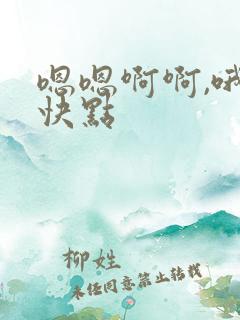 嗯嗯啊啊,哦
快點
柳姓
未经同意禁止转载